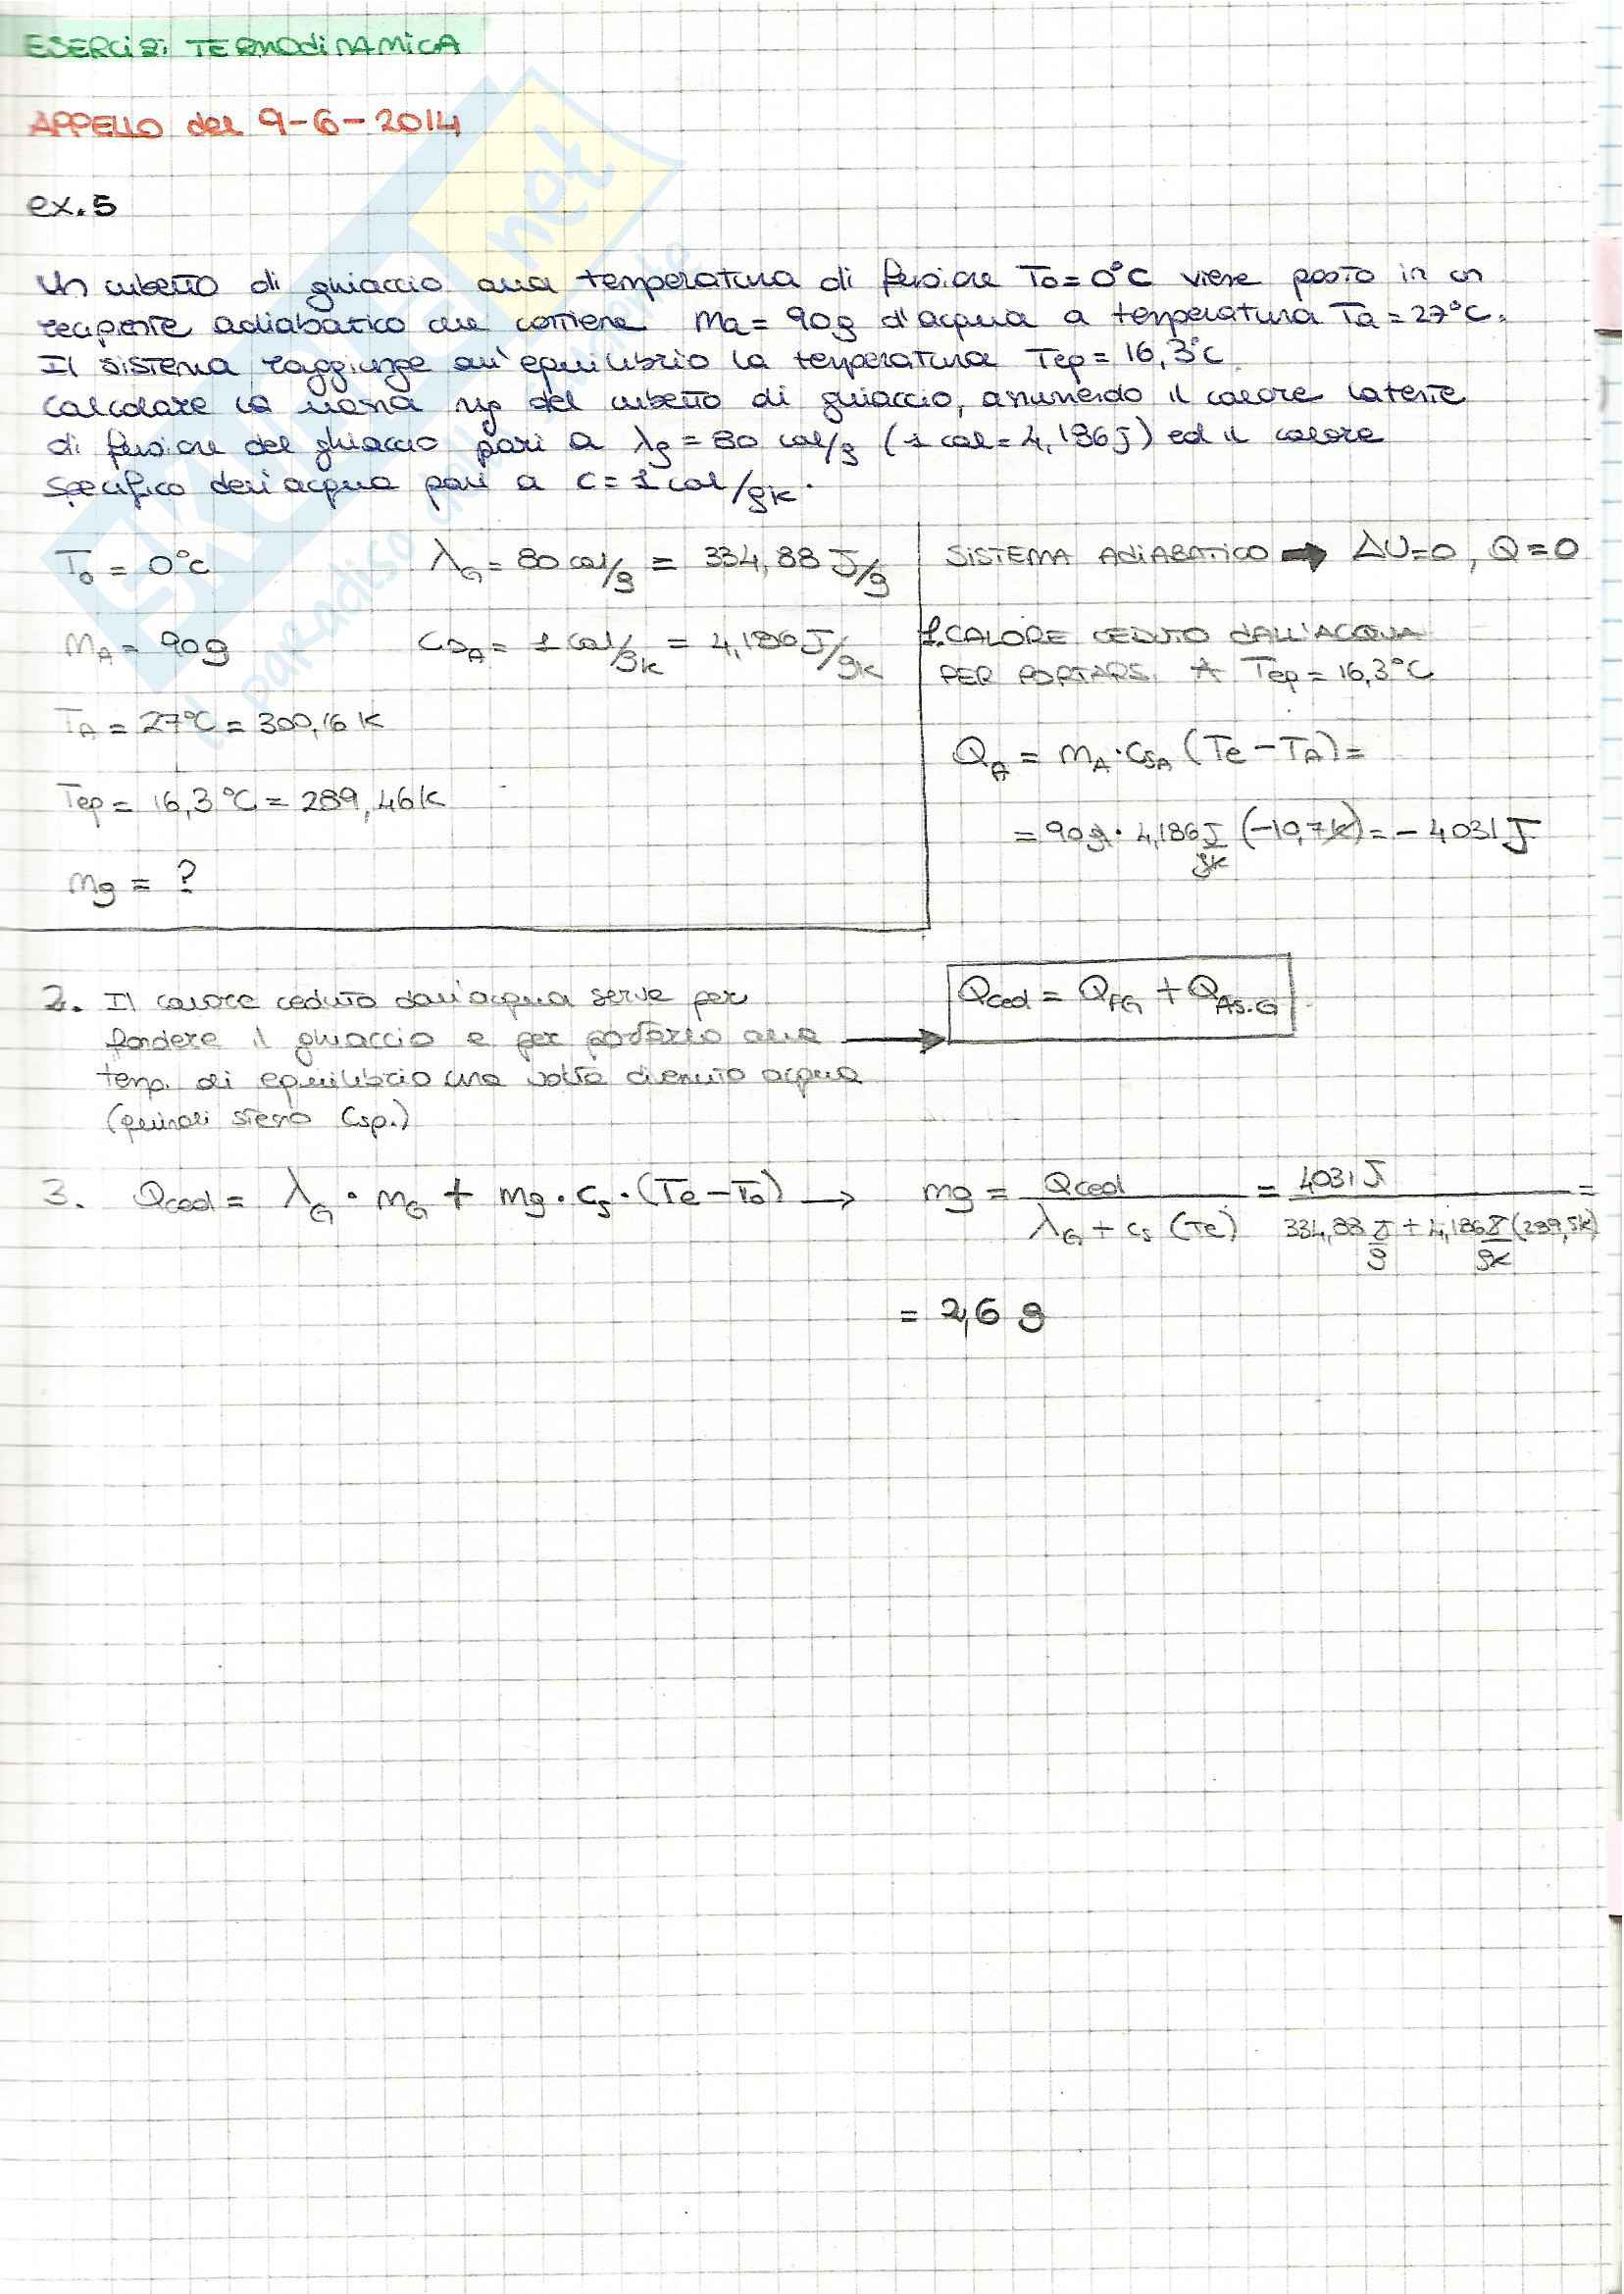 ESERCIZI TERMODINAMICA
APPELLO del 9-6-2014
ex.5
Un cubetto di ghiaccio alla temperatura di fusione To=0°C viene posto in un
recipiente adiabatico che contiene Ma=90g d'acqua a temperatura Ta=27°C.
Il sistema raggiunge all'equilibrio la temperatura Tep=16,3°C.
Calcolare la massa mg del cubetto di ghiaccio, assumendo il calore latente
di fusione del ghiaccio pari a λg=80 cal/g (1 cal=4,186J) ed il calore
specifico dell'acqua pari a c=1cal/gk.
To = 0°C
λG = 80 cal/g = 334,88 J/g
MA = 90g
CSA = 1 cal/gk = 4,186J/gk
TA = 27°C = 300,16 K
Tep = 16,3°C = 289,46K
Mg = ?
SISTEMA ADIABATICO ➡ ΔU=0, Q=0
1.CALORE CEDUTO DALL'ACQUA
PER PORTARSI A Tep=16,3°C
QA = MA·CSA (Te-TA)=
= 90g · 4,186J/gk (-10,7K) = - 4031J
2. Il calore ceduto dall'acqua serve per
fondere il ghiaccio e per portarlo alla
temp. di equilibrio una volta divenuto acqua
(quindi stesso Csp.)
Qced = QFG + QAS.G
3. Qced = λG · MG + Mg · Cs · (Te-To) → Mg = Qced / λG + Cs (Te) = 4031J / 334,88 J/g + 4,186J/gk (289,5K) =
= 2,6 g
SKUOLA.net
il paradiso dello studente